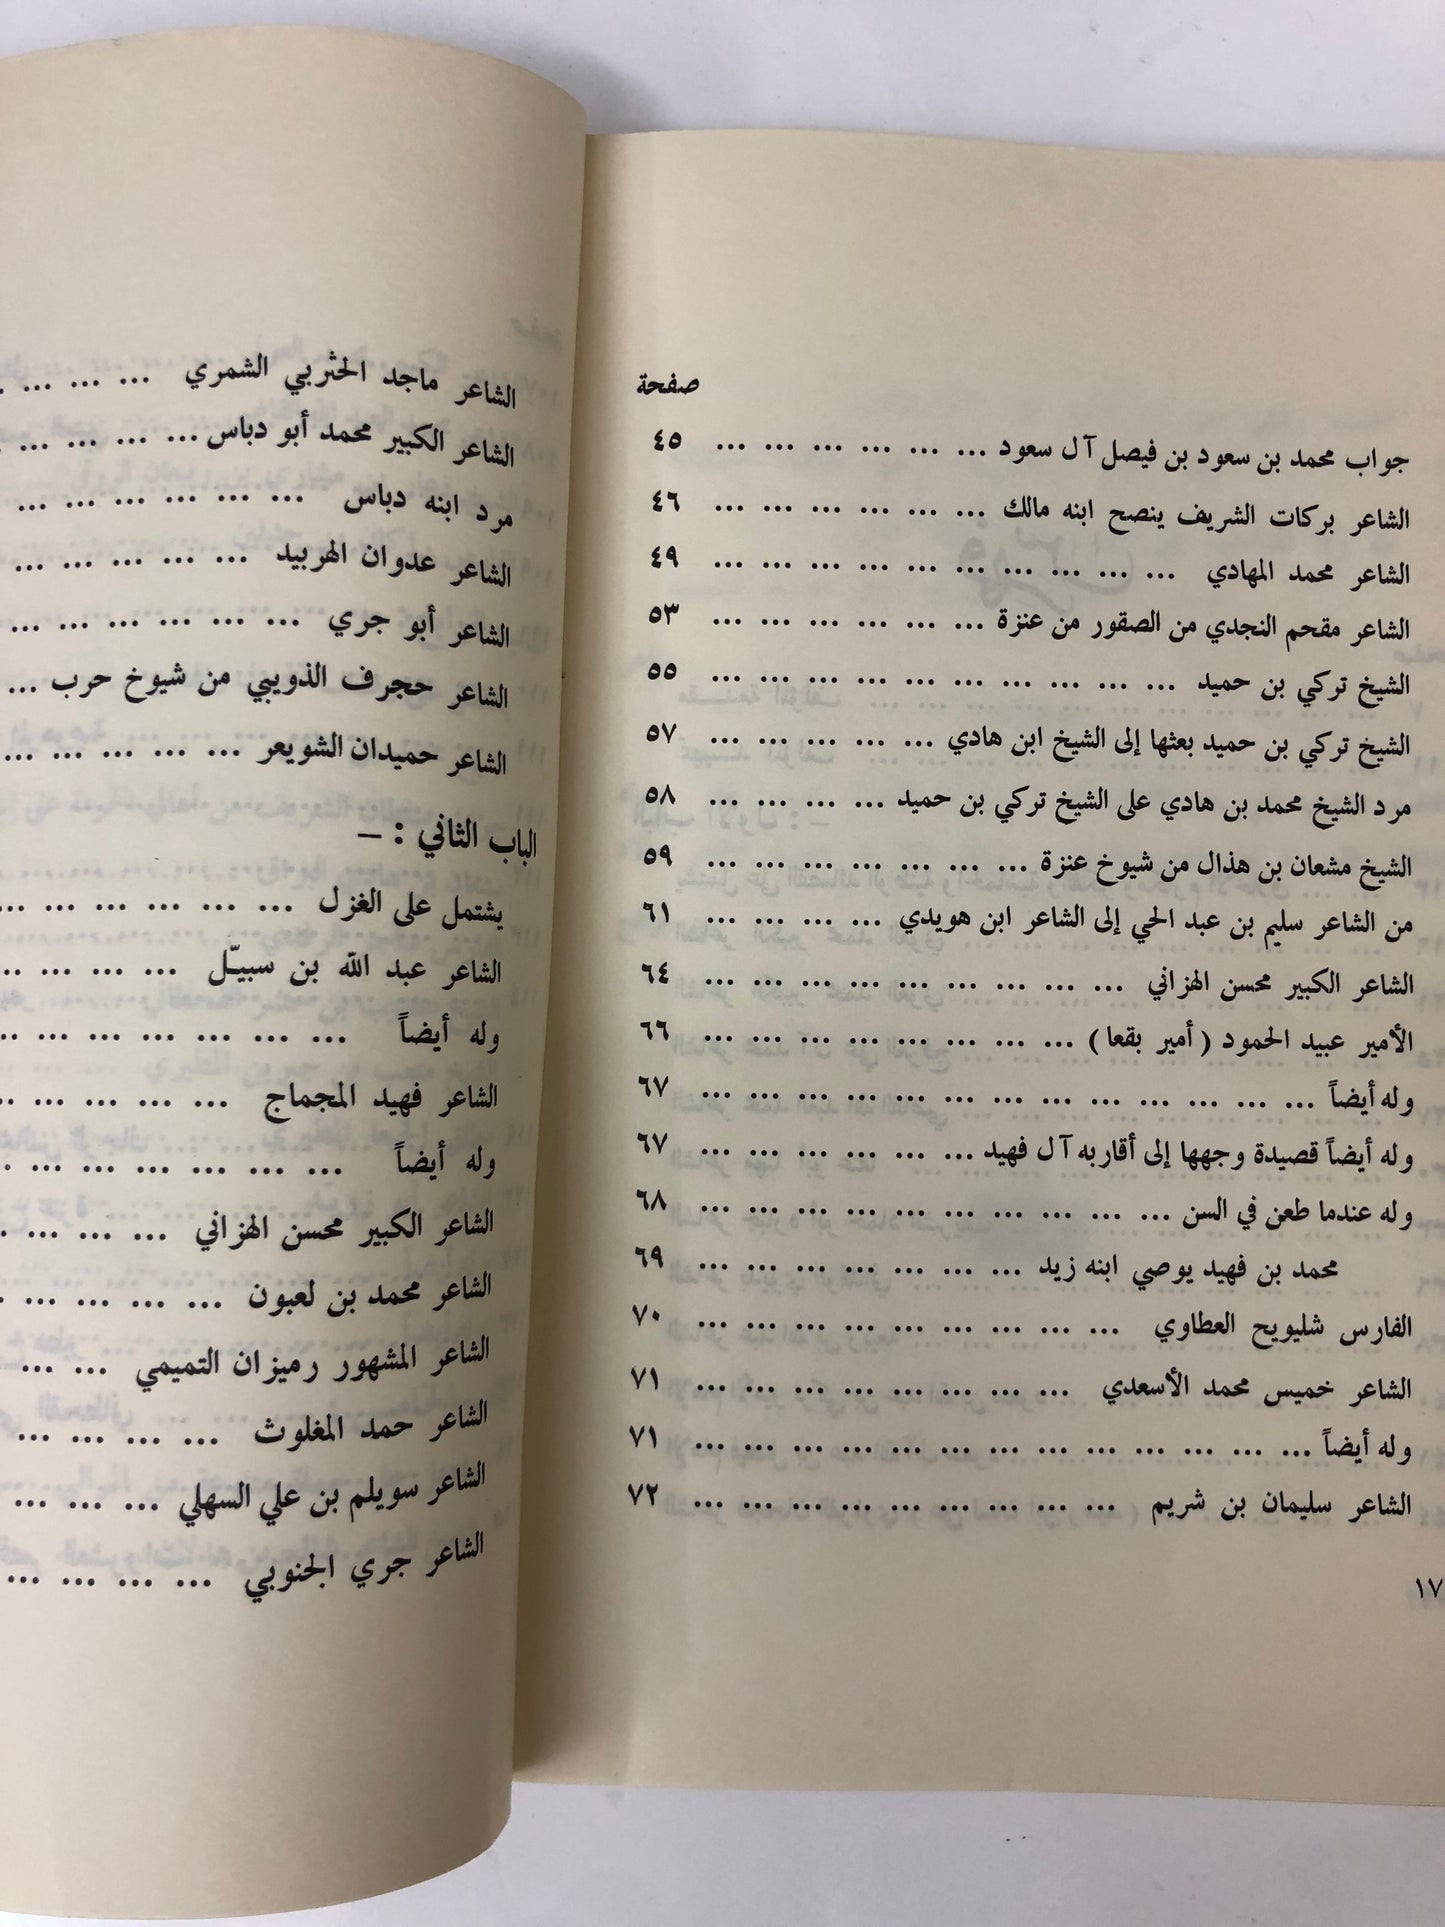 صفحة
جواب محمد بن سعود بن فيصل آل سعود ... ... ... ... ... ... ٤٥
الشاعر بركات الشريف ينصح ابنه مالك ... ... ... ... ... ... ٤٦
الشاعر محمد المهادي ... ... ... ... ... ... ... ... ... ... ٤٩
الشاعر مقحم النجدي من الصقور من عنزة ... ... ... ... ... ... ٥٣
الشيخ تركي بن حميد ... ... ... ... ... ... ... ... ... ... ٥٥
الشيخ تركي بن حميد بعثها إلى الشيخ ابن هادي ... ... ... ... ... ٥٧
مرد الشيخ محمد بن هادي على الشيخ تركي بن حميد ... ... ... ... ٥٨
الشيخ مشعان بن هذال من شيوخ عنزة ... ... ... ... ... ... ... ٥٩
من الشاعر سليم بن عبد الحي إلى الشاعر ابن هويدي ... ... ... ... ٦١
الشاعر الكبير محسن الهزاني ... ... ... ... ... ... ... ... ... ٦٤
الأمير عبيد الحمود ( أمير بقعا ) ... ... ... ... ... ... ... ... ٦٦
وله أيضاً ... ... ... ... ... ... ... ... ... ... ... ... ... ٦٧
وله أيضاً قصيدة وجهها إلى أقاربه آل فهيد ... ... ... ... ... ... ٦٧
وله عندما طعن في السن ... ... ... ... ... ... ... ... ... ... ٦٨
محمد بن فهيد يوصي ابنه زيد ... ... ... ... ... ... ... ٦٩
الفارس شليويح العطاوي ... ... ... ... ... ... ... ... ... ٧٠
الشاعر خميس محمد الأسعدي ... ... ... ... ... ... ... ... ٧١
وله أيضاً ... ... ... ... ... ... ... ... ... ... ... ... ... ٧١
الشاعر سليمان بن شريم ... ... ... ... ... ... ... ... ... ٧٢
١٧
الشاعر ماجد الحثربي الشمري ... ... ... ...
الشاعر الكبير محمد أبو دباس ... ... ... ... ...
مرد ابنه دباس ... ... ... ... ... ... ...
الشاعر عدوان الهربيد ... ... ... ... ...
الشاعر أبو جري ... ... ... ... ... ... ...
الشاعر حجرف الذويبي من شيوخ حرب ...
الشاعر حميدان الشويعر ... ... ... ... ... ...
الباب الثاني : –
يشتمل على الغزل ... ... ... ... ... ... ...
الشاعر عبد الله بن سبيّل ... ... ... ...
وله أيضاً ... ... ... ... ... ... ... ...
الشاعر فهيد المجماج ... ... ... ... ...
وله أيضاً ... ... ... ... ... ... ... ...
الشاعر الكبير محسن الهزاني ... ... ... ...
الشاعر محمد بن لعبون ... ... ... ... ...
الشاعر المشهور رميزان التميمي ... ... ...
الشاعر حمد المغلوث ... ... ... ... ...
الشاعر سويلم بن علي السهلي ... ... ...
الشاعر جري الجنوبي ... ... ... ... ...